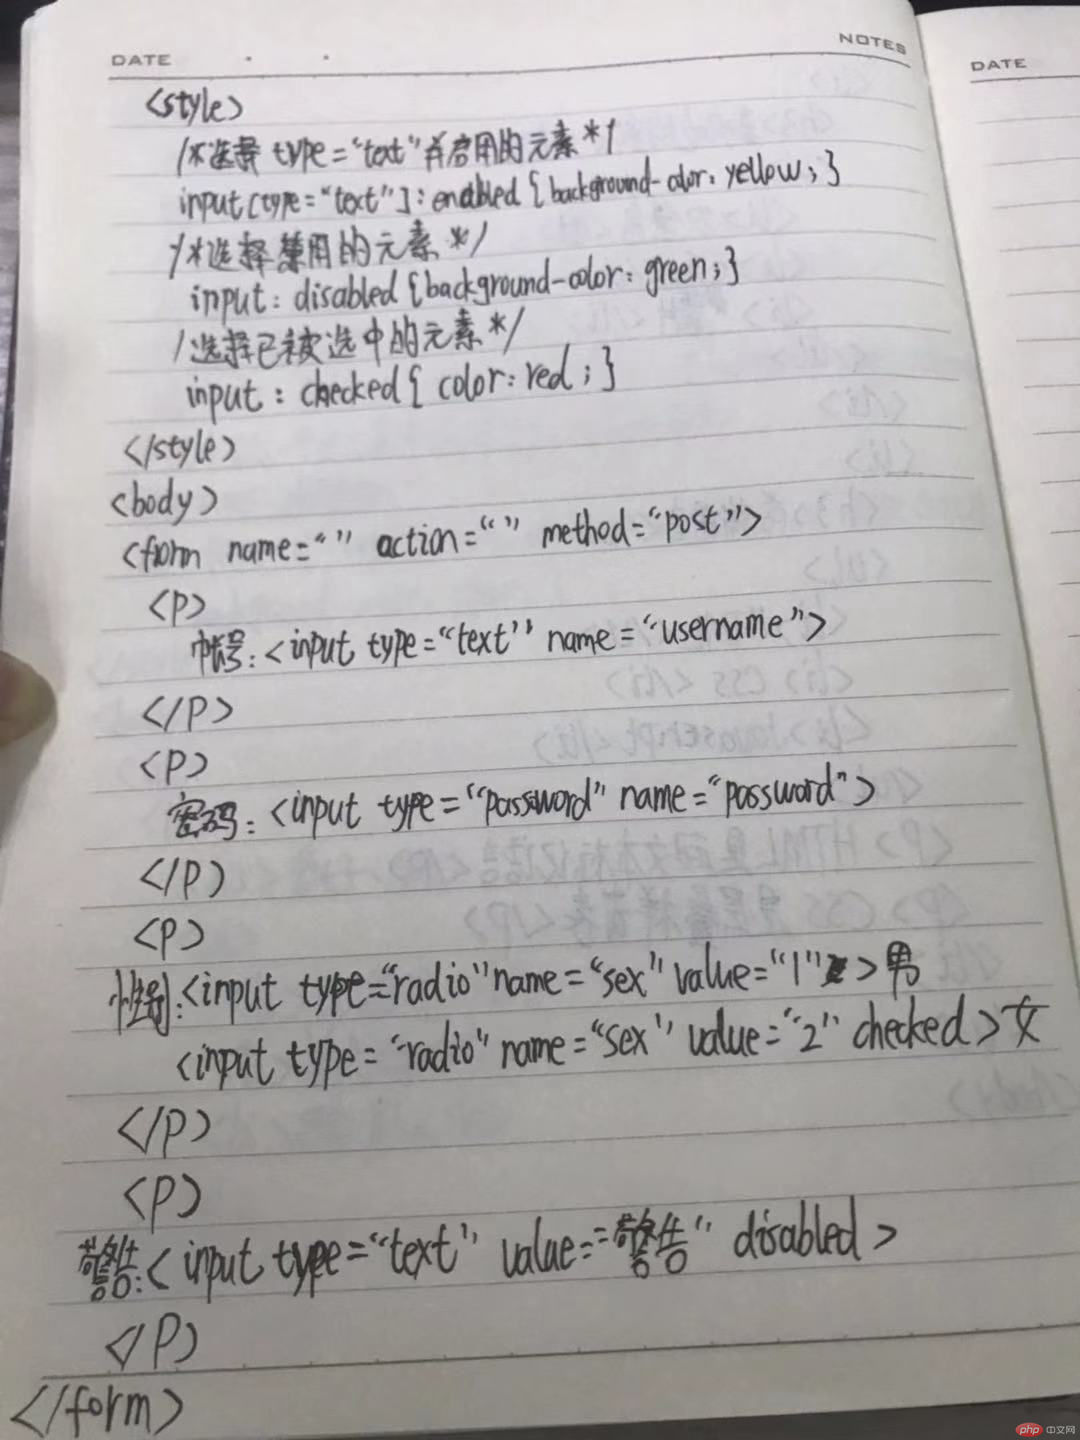 DATE
NOTES
<style>
/*选择 type="text"并启用的元素*/
input[type="text"]:enabled{background-color:yellow;}
/*选择禁用的元素*/
input:disabled{background-color:green;}
/选择已被选中的元素*/
input:checked{color:red;}
</style>
<body>
<form name="" action="" method="post">
<p>
帐号:<input type="text" name="username">
</p>
<p>
密码:<input type="password" name="password">
</p>
<p>
性别:<input type="radio" name="sex" value="1">男
<input type="radio" name="sex" value="2" checked>女
</p>
<p>
警告:<input type="text" value="警告" disabled>
</p>
</form>
DATE
php 中文网